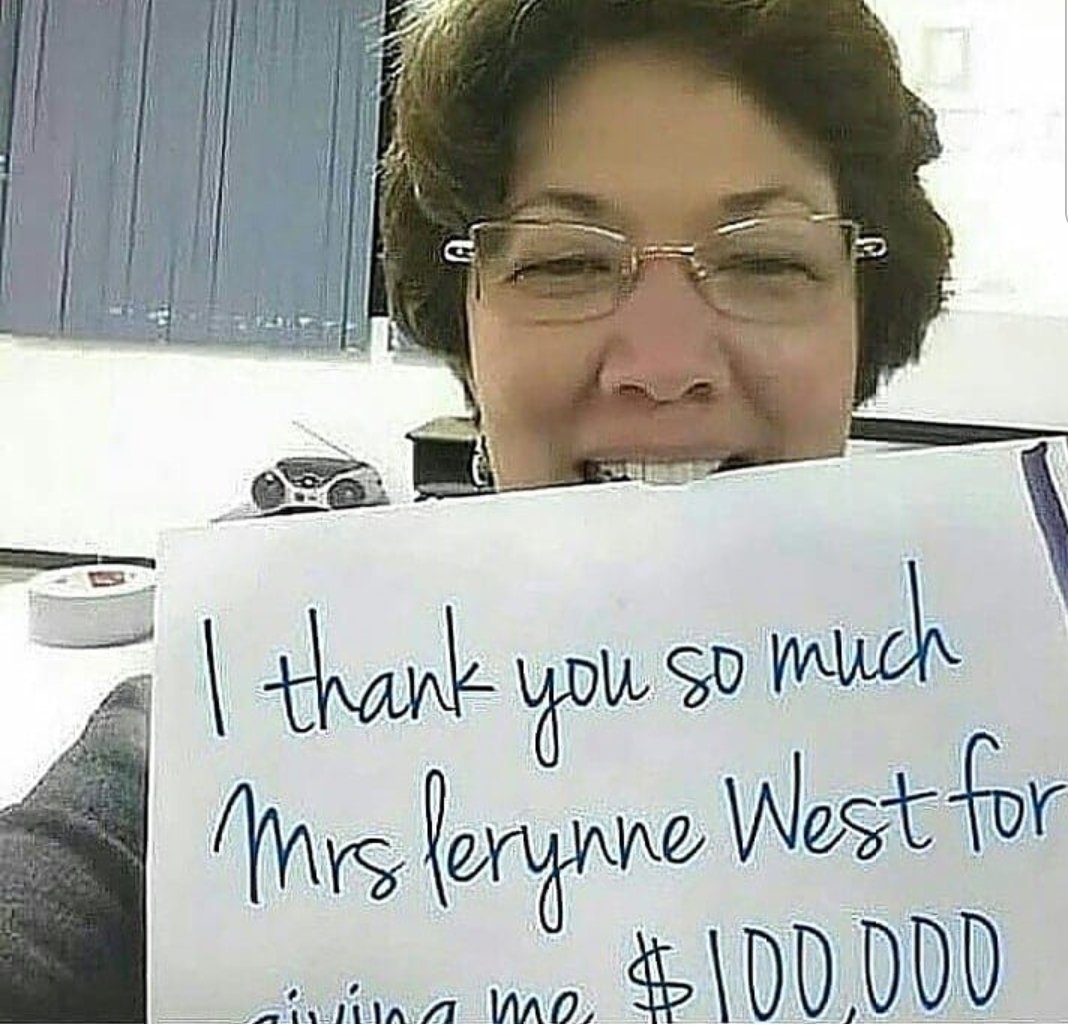 I thank you so much
Mrs lerynne West for
giving me $100,000